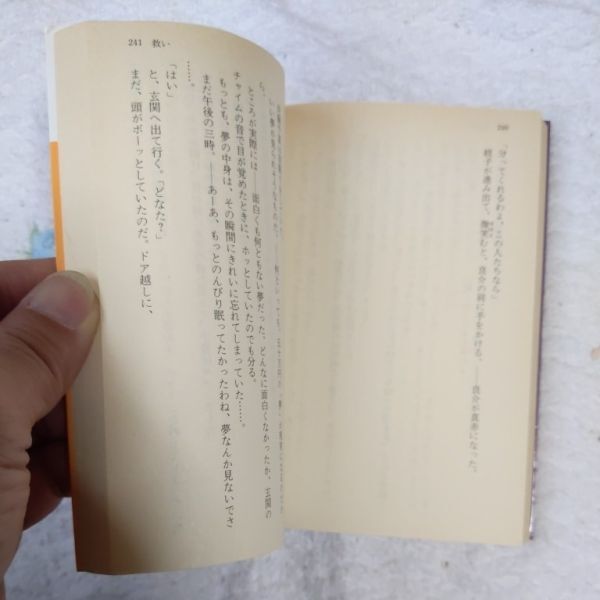 「分ってくれるわよ、この人たちなら」
経子が進み出て、微笑むと、良介の肩に手をかける。――良介が真赤になった。
241 救い
ら、いい夢が見られそうなものだ。
ところが実際には――面白くも何ともない夢だった。どんなに面白くなかったか、玄関の
チャイムの音で目が覚めたときに、ホッとしていたのでも分る。
もっとも、夢の中身は、その瞬間にきれいに忘れてしまっていた……。
まだ午後の三時。――あーあ、もっとのんびり眠ってたかったわね、夢なんか見ないでさ
……。
「はい」
と、玄関へ出て行く。「どなた？」
まだ、頭がボーッとしていたのだ。ドア越しに、